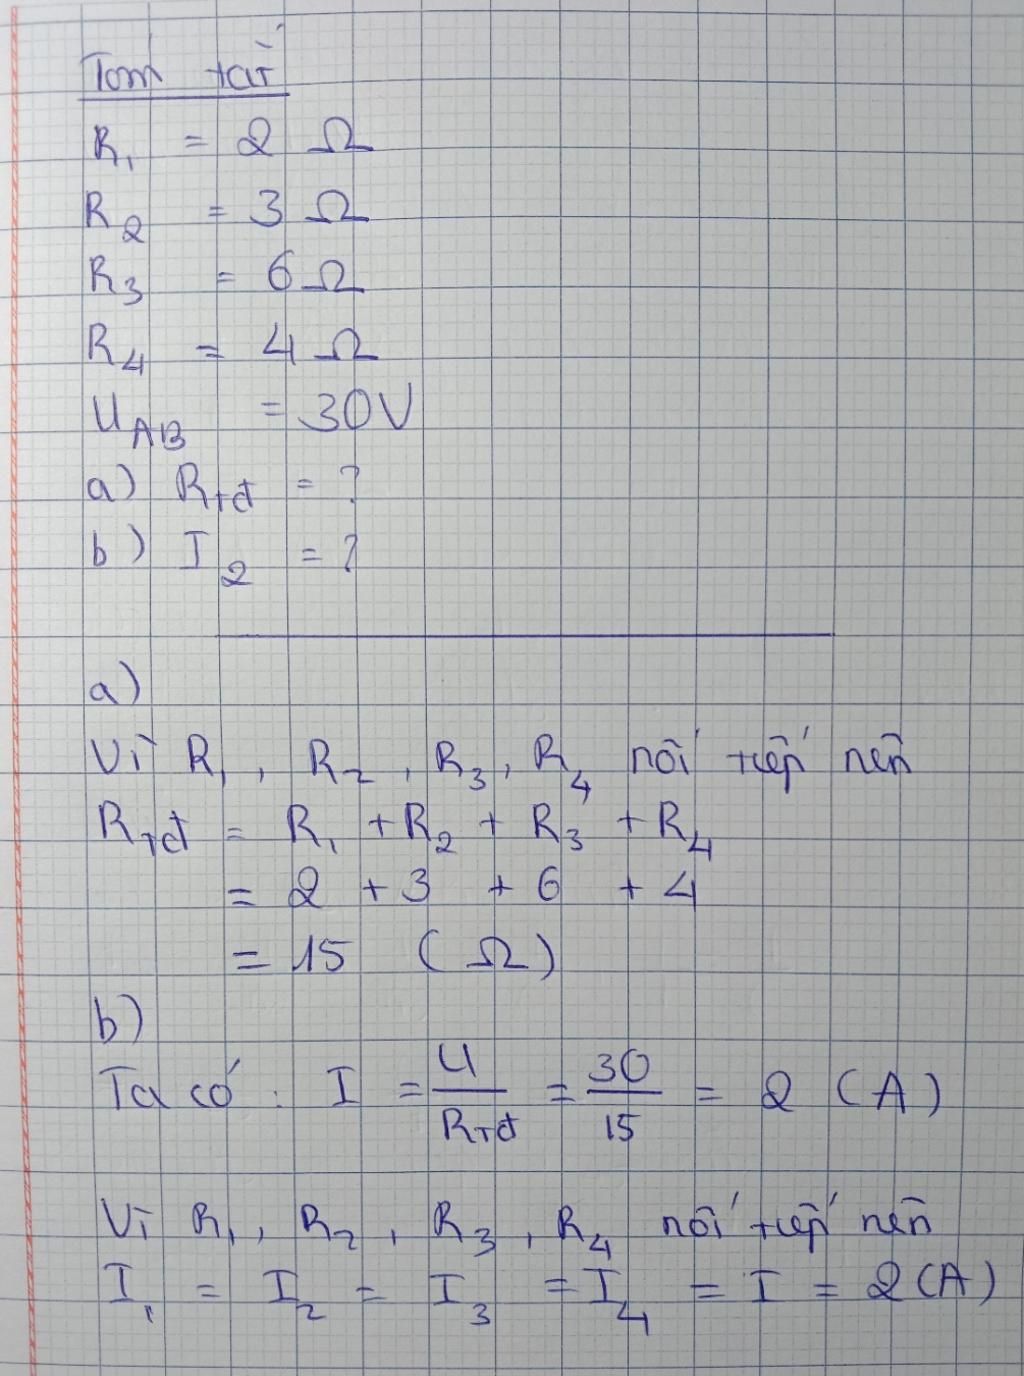 Tóm tắt
R₁ = 2 Ω
R₂ = 3 Ω
R₃ = 6 Ω
R₄ = 4 Ω
U_AB = 30V
a) R_tđ = ?
b) I₂ = ?
a)
Vì R₁, R₂, R₃, R₄ nối tiếp nên
R_tđ = R₁ + R₂ + R₃ + R₄
= 2 + 3 + 6 + 4
= 15 (Ω)
b)
Ta có: I = U/R_tđ = 30/15 = 2 (A)
Vì R₁, R₂, R₃, R₄ nối tiếp nên
I₁ = I₂ = I₃ = I₄ = I = 2(A)